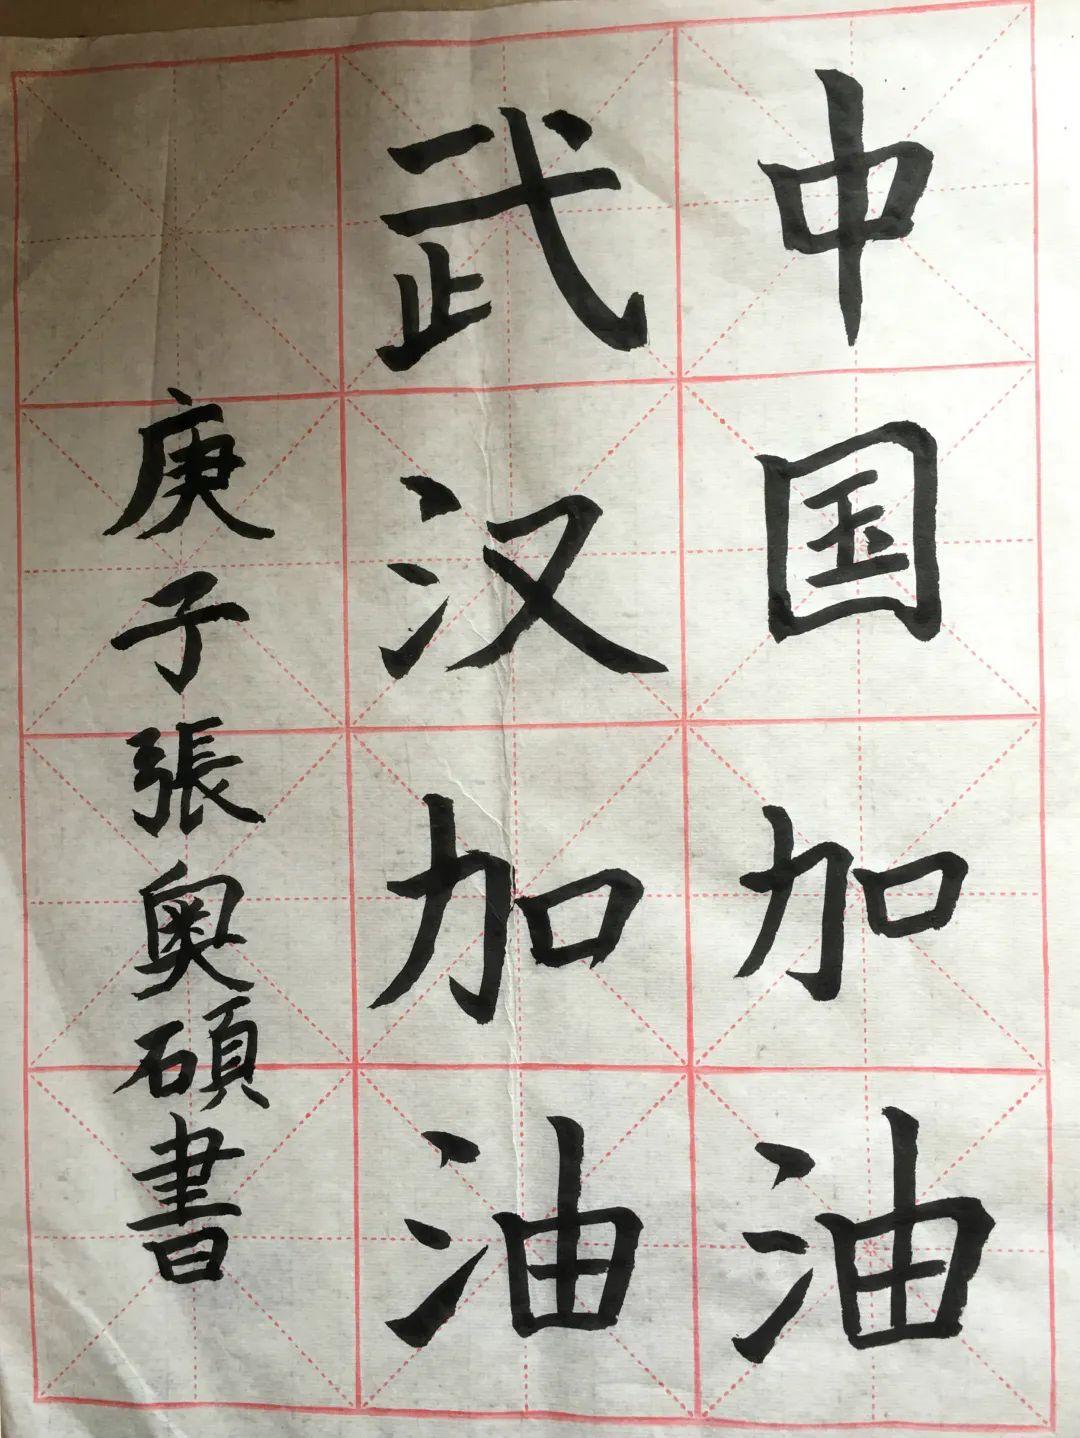 中国加油
武汉加油
庚子張奥碩書